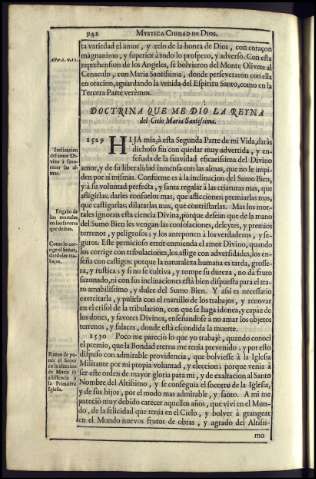 942
MYSTICA CIUDAD DE DIOS.
ta variedad el amor, y zelo de la honra de Dios, con coraçon
magnanimo, y superior à todo lo prospero, y adverso. Con esta
reprehension de los Angeles, se bolvieron del Monte Olivete al
Cenaculo, con Maria Santissima, donde perseveraron con ella
en oracion, aguardando la venida del Espiritu Santo, como en la
Tercera Parte verèmos.
DOCTRINA QUE ME DIÒ LA REYNA
del Cielo Maria Santissima.
1529 HIJA mia, à esta Segunda Parte de mi Vida, daràs
dichoso fin con quedar muy advertida, y en-
señada de la suavidad eficacissima del Divino
amor, y de su liberalidad inmensa con las almas, que no le impi-
den por sì mismas. Conforme es à la inclinacion del Sumo Bien,
y à su voluntad perfecta, y santa regalar à las criaturas mas, que
afligirlas: darles consuelos mas, que aflicciones: premiarlas mas,
que castigarlas: dilatarlas mas, que contristarlas. Mas los mor-
tales ignoran esta ciencia Divina, porque desean que de la mano
del Sumo Bien les vengan las consolaciones, deleytes, y premios
terrenos, y peligrosos; y los anteponen à los verdaderos, y se-
guros. Este pernicioso error enmienda el amor Divino, quando
los corrige con tribulaciones, los aflige con adversidades, los en-
seña con castigos: porque la naturaleza humana es tarda, grosse-
ra, y rustica: y si no se cultiva, y rompe su dureza, no dà fruto
sazonado, ni con sus inclinaciones està bien dispuesta para el tra-
to amabilissimo, y dulce del Sumo Bien. Y assi es necessario
exercitarla, y pulirla con el martillo de los trabajos, y renovar
en el crisol de la tribulacion, con que se haga idonea, y capaz de
los dones, y favores Divinos, enseñandose à no amar los objetos
terrenos, y falaces, donde està escondida la muerte.
1530 Poco me pareciò lo que yo trabajè, quando conocì
el premio, que la Bondad eterna me tenia prevenido: y por esto
dispuso con admirable providencia, que bolviesse à la Iglesia
Militante por mi propia voluntad, y eleccion: porque venia à
ser este orden de mayor gloria para mì, y de exaltacion al Santo
Nombre del Altissimo, y se conseguìa el socorro de la Iglesia,
y de sus hijos, por el modo mas admirable, y santo. A mì me
pareciò muy debido carecer aquellos años, que vivì en el Mun-
do, de la felicidad que tenia en el Cielo, y bolver à grangear
en el Mundo nuevos frutos de obras, y agrado del Altissi-
mo